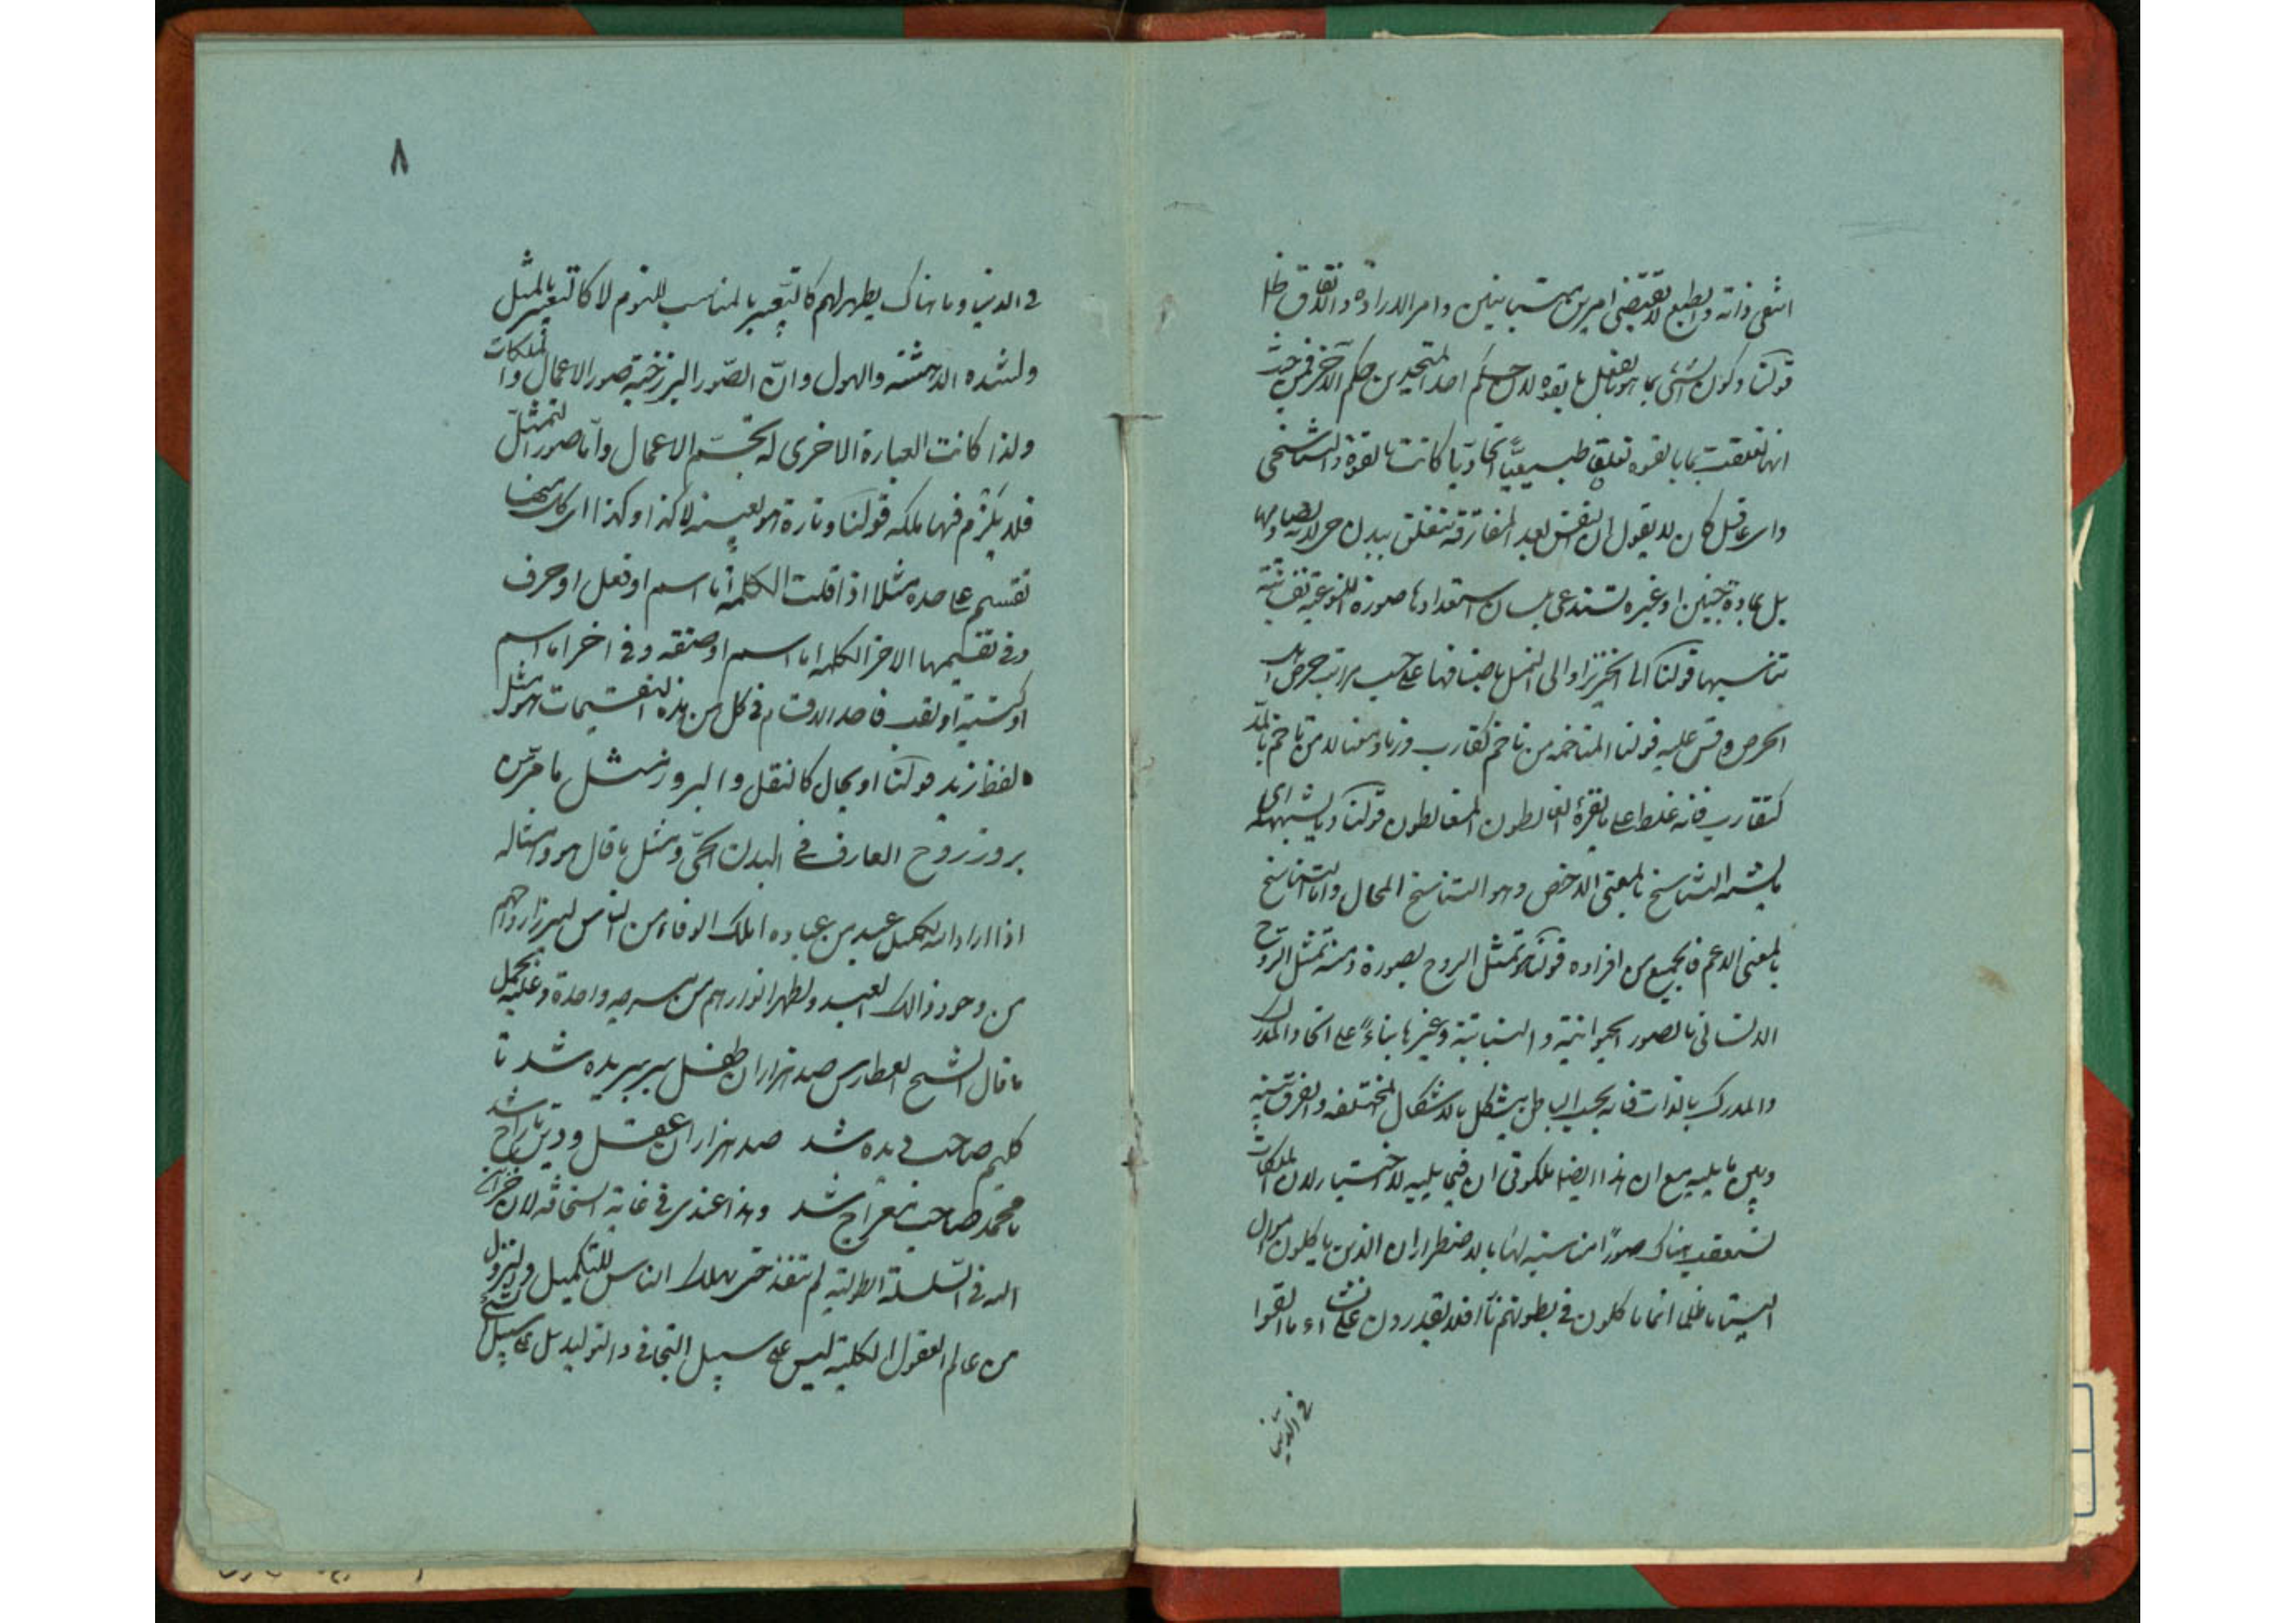 انتفى ذاته والطبع لا يقتضى امرين متباينين وامر الارادة والاتفاق ظ
قولنا وكون الشئ بما هو بالفعل بالقوه لان حكم احد المتحدين حكم الآخر فمن حيث
انها تعلقت بما بالقوه تعلقا طبيعيّا اتحاديّا كانت بالقوة والتناسخى
واى عاقل كان لا يقول ان النفس بعد المفارقة تتعلق ببدن حى
بل بمادة جنين او غيره تستدعى بلسان استعدادها صورة
تناسبها قولنا الى الخنزير او الى النمل باصنافها على حسب مراتب حرص
الحرص وقس عليه قولنا المتناخمه من تاخم كتقارب وزنا ومعنا لا من تاخم
كتقارب فانه غلط على ما يقرؤه الغالطون المغالطون قولنا وما يشبهه اى
ما يشبه التناسخ بالمعنى الاخص وهو التناسخ المحال واما التناسخ
بالمعنى الاعم فالجميع من افراده قولنا كتمثل الروح بصورة ومنه تمثل الروح
الانسانى بالصور الحيوانية والنباتية وغيرها بناءً على اتحاد المدرك
والمدرك بالذات فانه بحسب الباطن يتشكل بالاشكال المختلفه والفرق بينه
وبين ما يليه مع ان هذا ايضا ملكوتى ان فيما يليه لا اختيار لان الملكات
تستعقب هناك صورًا مناسبة لها بالاضطرار ان الذين ياكلون اموال
اليتامى ظلما انما ياكلون فى بطونهم نارا فلا يقدرون على انشاء ما القوا
فى الدنيا
٨
فى الدنيا وما هناك يظهر لهم كالتعبير بالمناسب للنوم لا كالتعبير بالمثل
ولشده الدهشة والهول وانّ الصّور البرزخية صور الاعمال والملكات
ولذا كانت العبارة الاخرى له تجسّم الاعمال وامّا صور التمثّل
فلا يلزم فيها ملكه قولنا وتارة هو بعينه لا كذا وكذا اى كل منهما
تقسيم على حده مثلا اذا قلت الكلمة اما اسم او فعل او حرف
وفى تقسيمها الاخر الكلمه اما اسم او صفة وفى اخر اما اسم
او كنية او لقب فاحد الاقسام فى كل من هذه التقسيمات هو مثل
لفظ زيد قولنا او بحال كالنقل والبروز مثل ما مرّ من
بروز روح العارف فى البدن الحىّ ومثل ما قال هو وامثاله
اذا اراد الله تكميل عبد من عباده اهلك الوفا من الناس ليبرز ارواحهم
من وجود ذالك العبد وليظهر انوارهم من واحدة وعليه يحمل
ما قال الشيخ العطار س صد هزاران طفل سر ببريده شد تا
كليم صاحب ديده شد صد هزاران عقل ودين تاراج شد
تا محمّد صاحب معراج شد وهذا عندى فى غاية السخافه لان خزائن
الله فى السّلسلة الطولية لم تنفد حتى يهلك الناس للتكميل والنزول
من عالم العقول الكلية ليس على سبيل التجافى والتوليد بل على سبيل